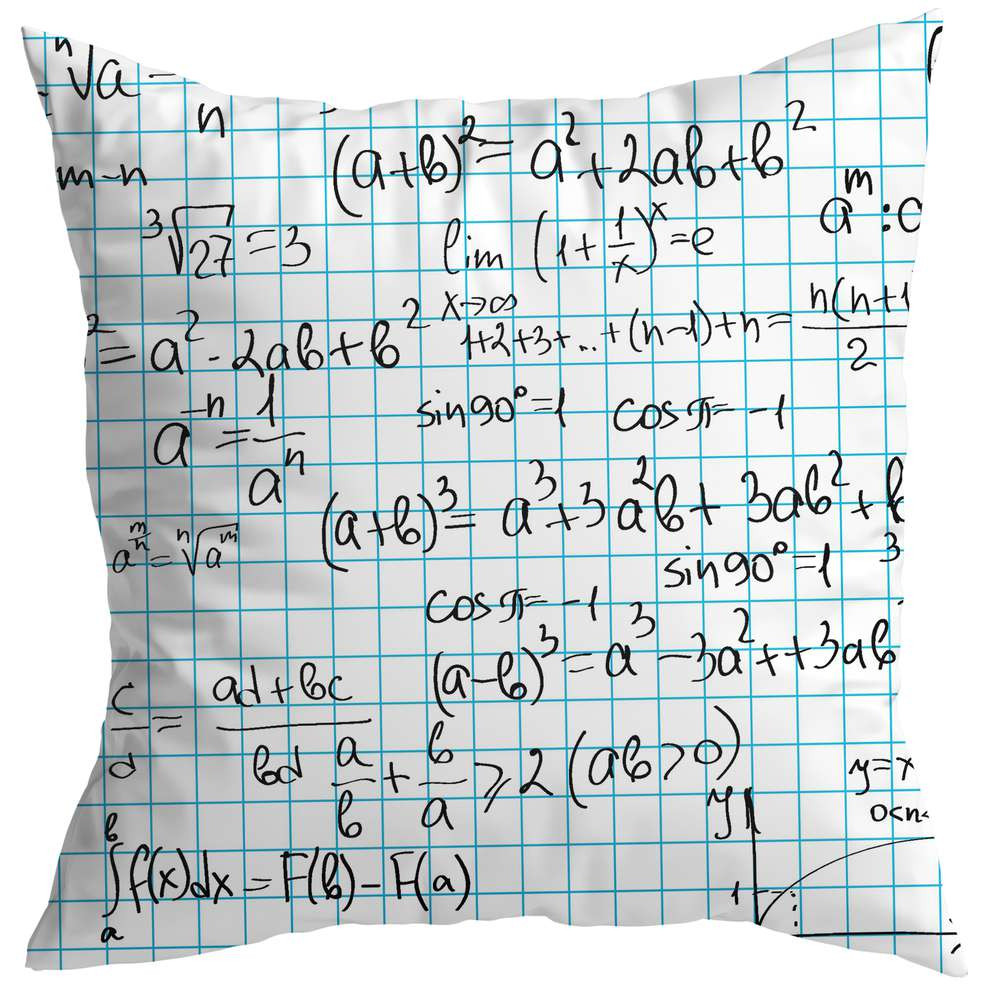 ⁿ√a –
n
m-n
(a+b)² = a²+2ab+b²
aᵐ:a
³√27 = 3
lim (1+1/x)ˣ=e
x→∞
² = a² - 2ab+b²
1+2+3+...+(n-1)+n= n(n+1 / 2
a⁻ⁿ = 1/aⁿ
sin90°=1 cosπ= -1
(a+b)³= a³+3a²b+ 3ab²+b
3
a^(m/n) = ⁿ√aᵐ
sin90°=1
cosπ= -1
(a-b)³=a³-3a²++3ab
c/d = ad+bc / bd
a/b + b/a ⩾ 2 (ab>0)
y=x
0<n<
y
1
∫ₐᵇ f(x)dx = F(b)-F(a)